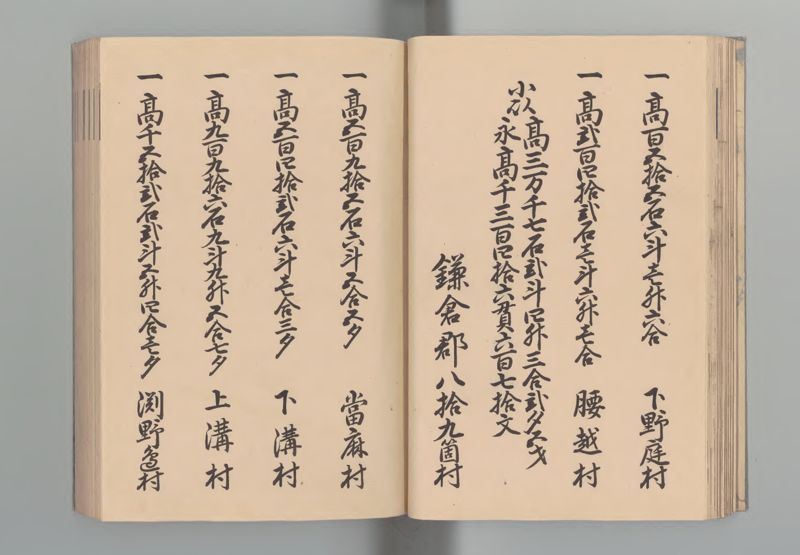 一高百五拾五石六斗壱升六合 下野庭村
一高弐百四拾弐石壱斗六升壱合 腰越村
小以高三万千七石弐斗四升三合弐夕五才
永高千三百四拾六貫六百七拾文
鎌倉郡八拾九箇村
一高五百九拾五石六斗五合五夕 當麻村
一高五百四拾弐石六斗壱合三夕 下溝村
一高九百九拾六石九斗九升五合七夕 上溝村
一高千五拾弐石弐斗五升四合壱夕 渕野邉村